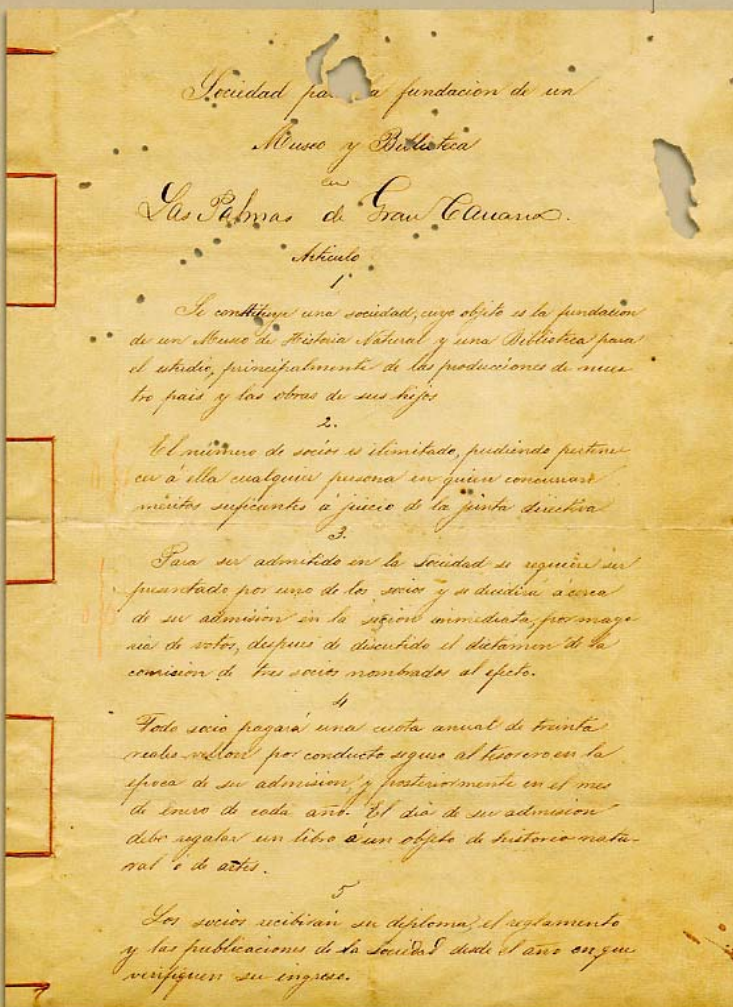 Sociedad para la fundacion de un
Museo y Biblioteca
en
Las Palmas de Gran Canaria.
Artículo
1º
Se constituye una sociedad, cuyo objeto es la fundacion
de un Museo de Historia Natural y una Biblioteca para
el estudio, principalmente de las producciones de nues
tro pais y las obras de sus hijos
2.
El número de socios es ilimitado, pudiendo pertene
cer á ella cualquier persona en quien concurran
méritos suficientes á juicio de la junta directiva
3.
Para ser admitido en la Sociedad se requiere ser
presentado por uno de los socios y se decidirá acerca
de su admision en la sesion inmediata, por mayo
ria de votos, despues de discutido el dictamen de la
comision de tres socios nombrados al efecto.
4
Todo socio pagará una cuota anual de treinta
reales vellon por conducto seguro al tesorero en la
época de su admision, y posteriormente en el mes
de Enero de cada año. El dia de su admision
debe regalar un libro á un objeto de historia natu-
ral ó de artes.
5
Los socios recibirán su diploma, el reglamento
y las publicaciones de la Sociedad desde el año en que
verifiquen su ingreso.